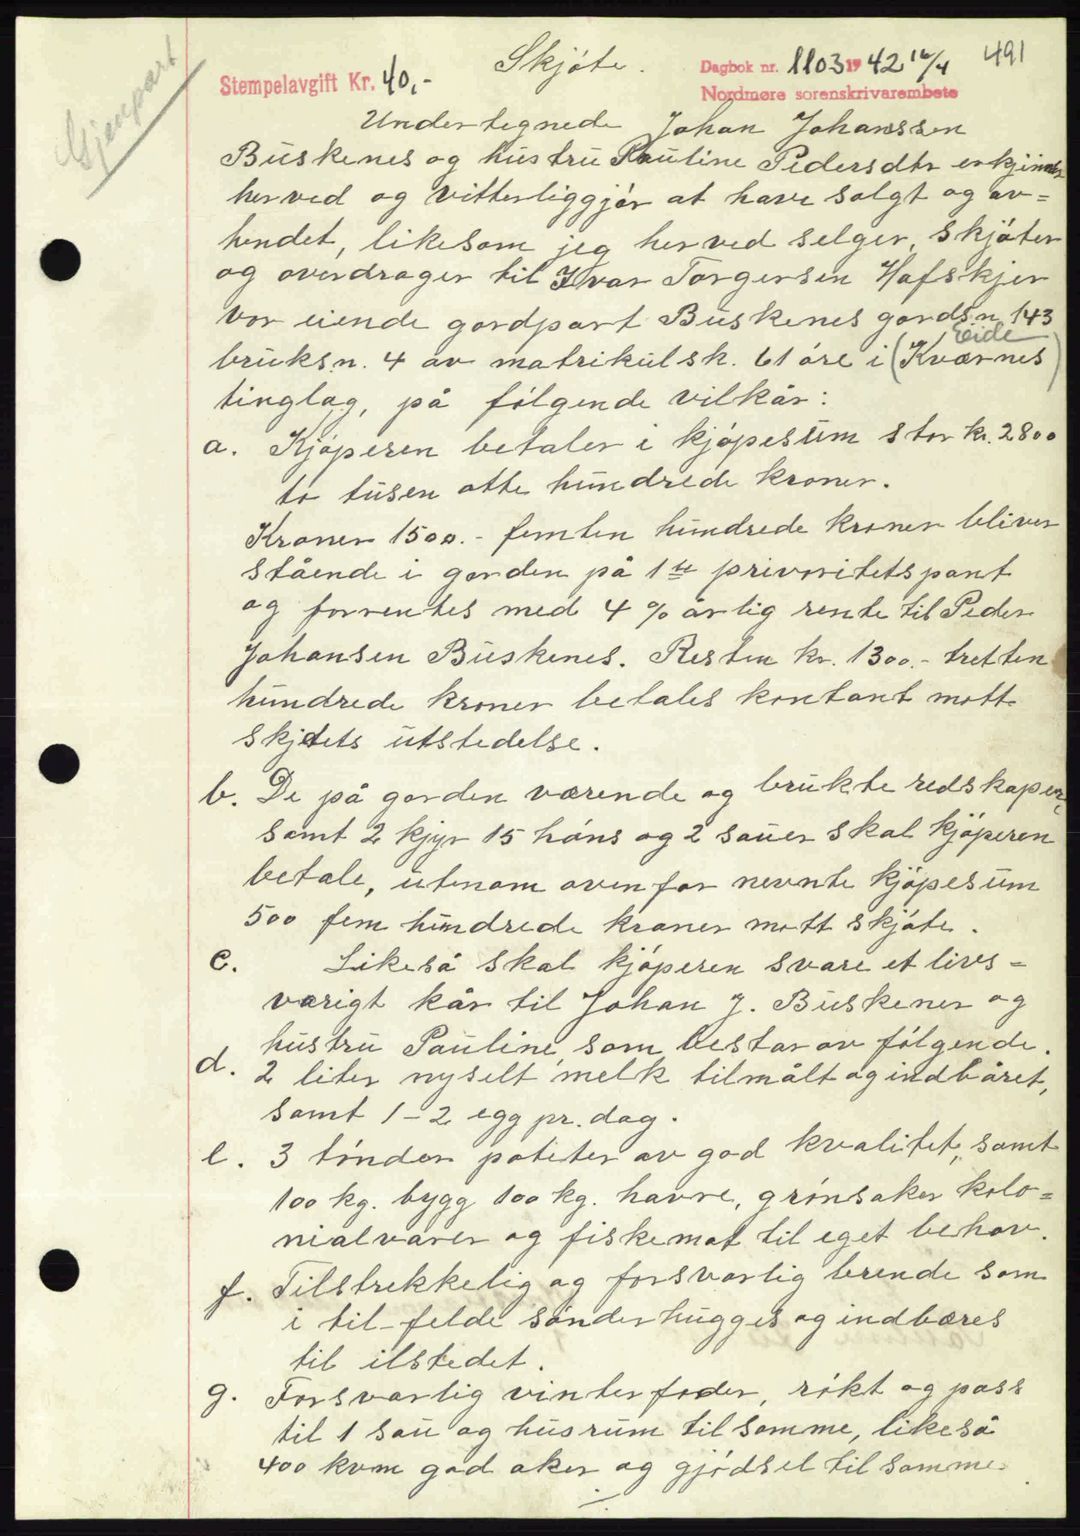 Gjenpart
Skjöte.
491
Stempelavgift Kr. 40,-
Dagbok nr. 1103 19 42 16/4
Nordmøre sorenskrivarembete
Undertegnede Johan Johanssen
Buskenes og hustru Pauline Pedersdtr erkjenner
herved og vitterliggjör at have solgt og av=
hendet, likesom jeg herved selger, skjöter
og overdrager til Ivar Torgersen Hafskjer
vor eiende gardpart Buskenes gardsn. 143
Eide
bruksn. 4 av matrikulsk. 61 öre i (Kværnes)
tinglag, på fölgende vilkår:
a. Kjöperen betaler i kjöpesum stor kr. 2800
to tusen otte hundrede kroner.
Kroner 1500.- femten hundrede kroner bliver
stående i garden på 1ste privoritetspant
og forrentes med 4 % årlig rente til Peder
Johansen Buskenes. Resten kr. 1300.- tretten
hundrede kroner betales kontant mott
skjötets utstedelse.
b. De på garden værende og brukte redskaper,
samt 2 kjyr 15 höns og 2 sauer skal kjöperen
betale, utenom ovenfor nevnte kjöpesum
500 fem hundrede kroner mott skjöte.
c. Likeså skal kjöperen svare et livs=
varigt kår til Johan J. Buskenes og
hustru Pauline, som bestar av fölgende.
d. 2 liter nyselt melk tilmålt og indbåret,
samt 1-2 egg pr. dag.
e. 3 tönder poteter av god kvalitet, samt
100 kg. bygg 100 kg. havre, grönsaker kolo=
nialvarer og fiskemat til eget behov.
f. Tilstrekkelig og forsvarlig brende som
i til-felde sönderhugges og indbæres
til ilstedet.
g. Forsvarlig vinterfoder, rökt og pass
til 1 sau og husrum til samme, likeså
400 kvm god aker og gjödsel til samme.